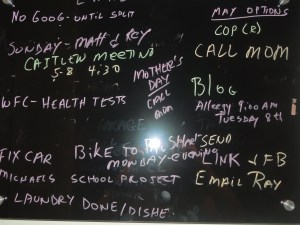 NO GOOG-UNTIL SPLIT
SUNDAY-MATT & REY
CAITLEW MEETING
5-8 4:30
MOTHER'S
DAY
CALL
MOM
WFC-HEALTH TESTS
FIX CAR
BIKE TO
MONDAY-EVENING
MICHAELS SCHOOL PROJECT
LAUNDRY DONE/DISHE.
MAY OPTIONS
COP (2)
CALL MOM
BLOG
Allergy 9:00AM
TUESDAY 8th
SEND
LINK FB
EMAIL RAY